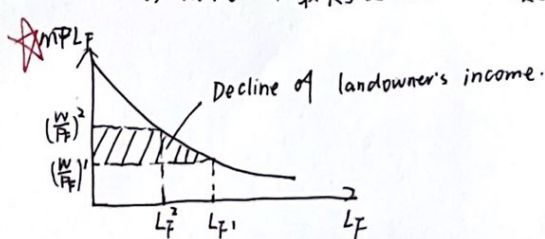 MPL_F
Decline of landowner's income.
(W/P_F)²
(W/P_F)¹
L_F² L_F¹ L_F